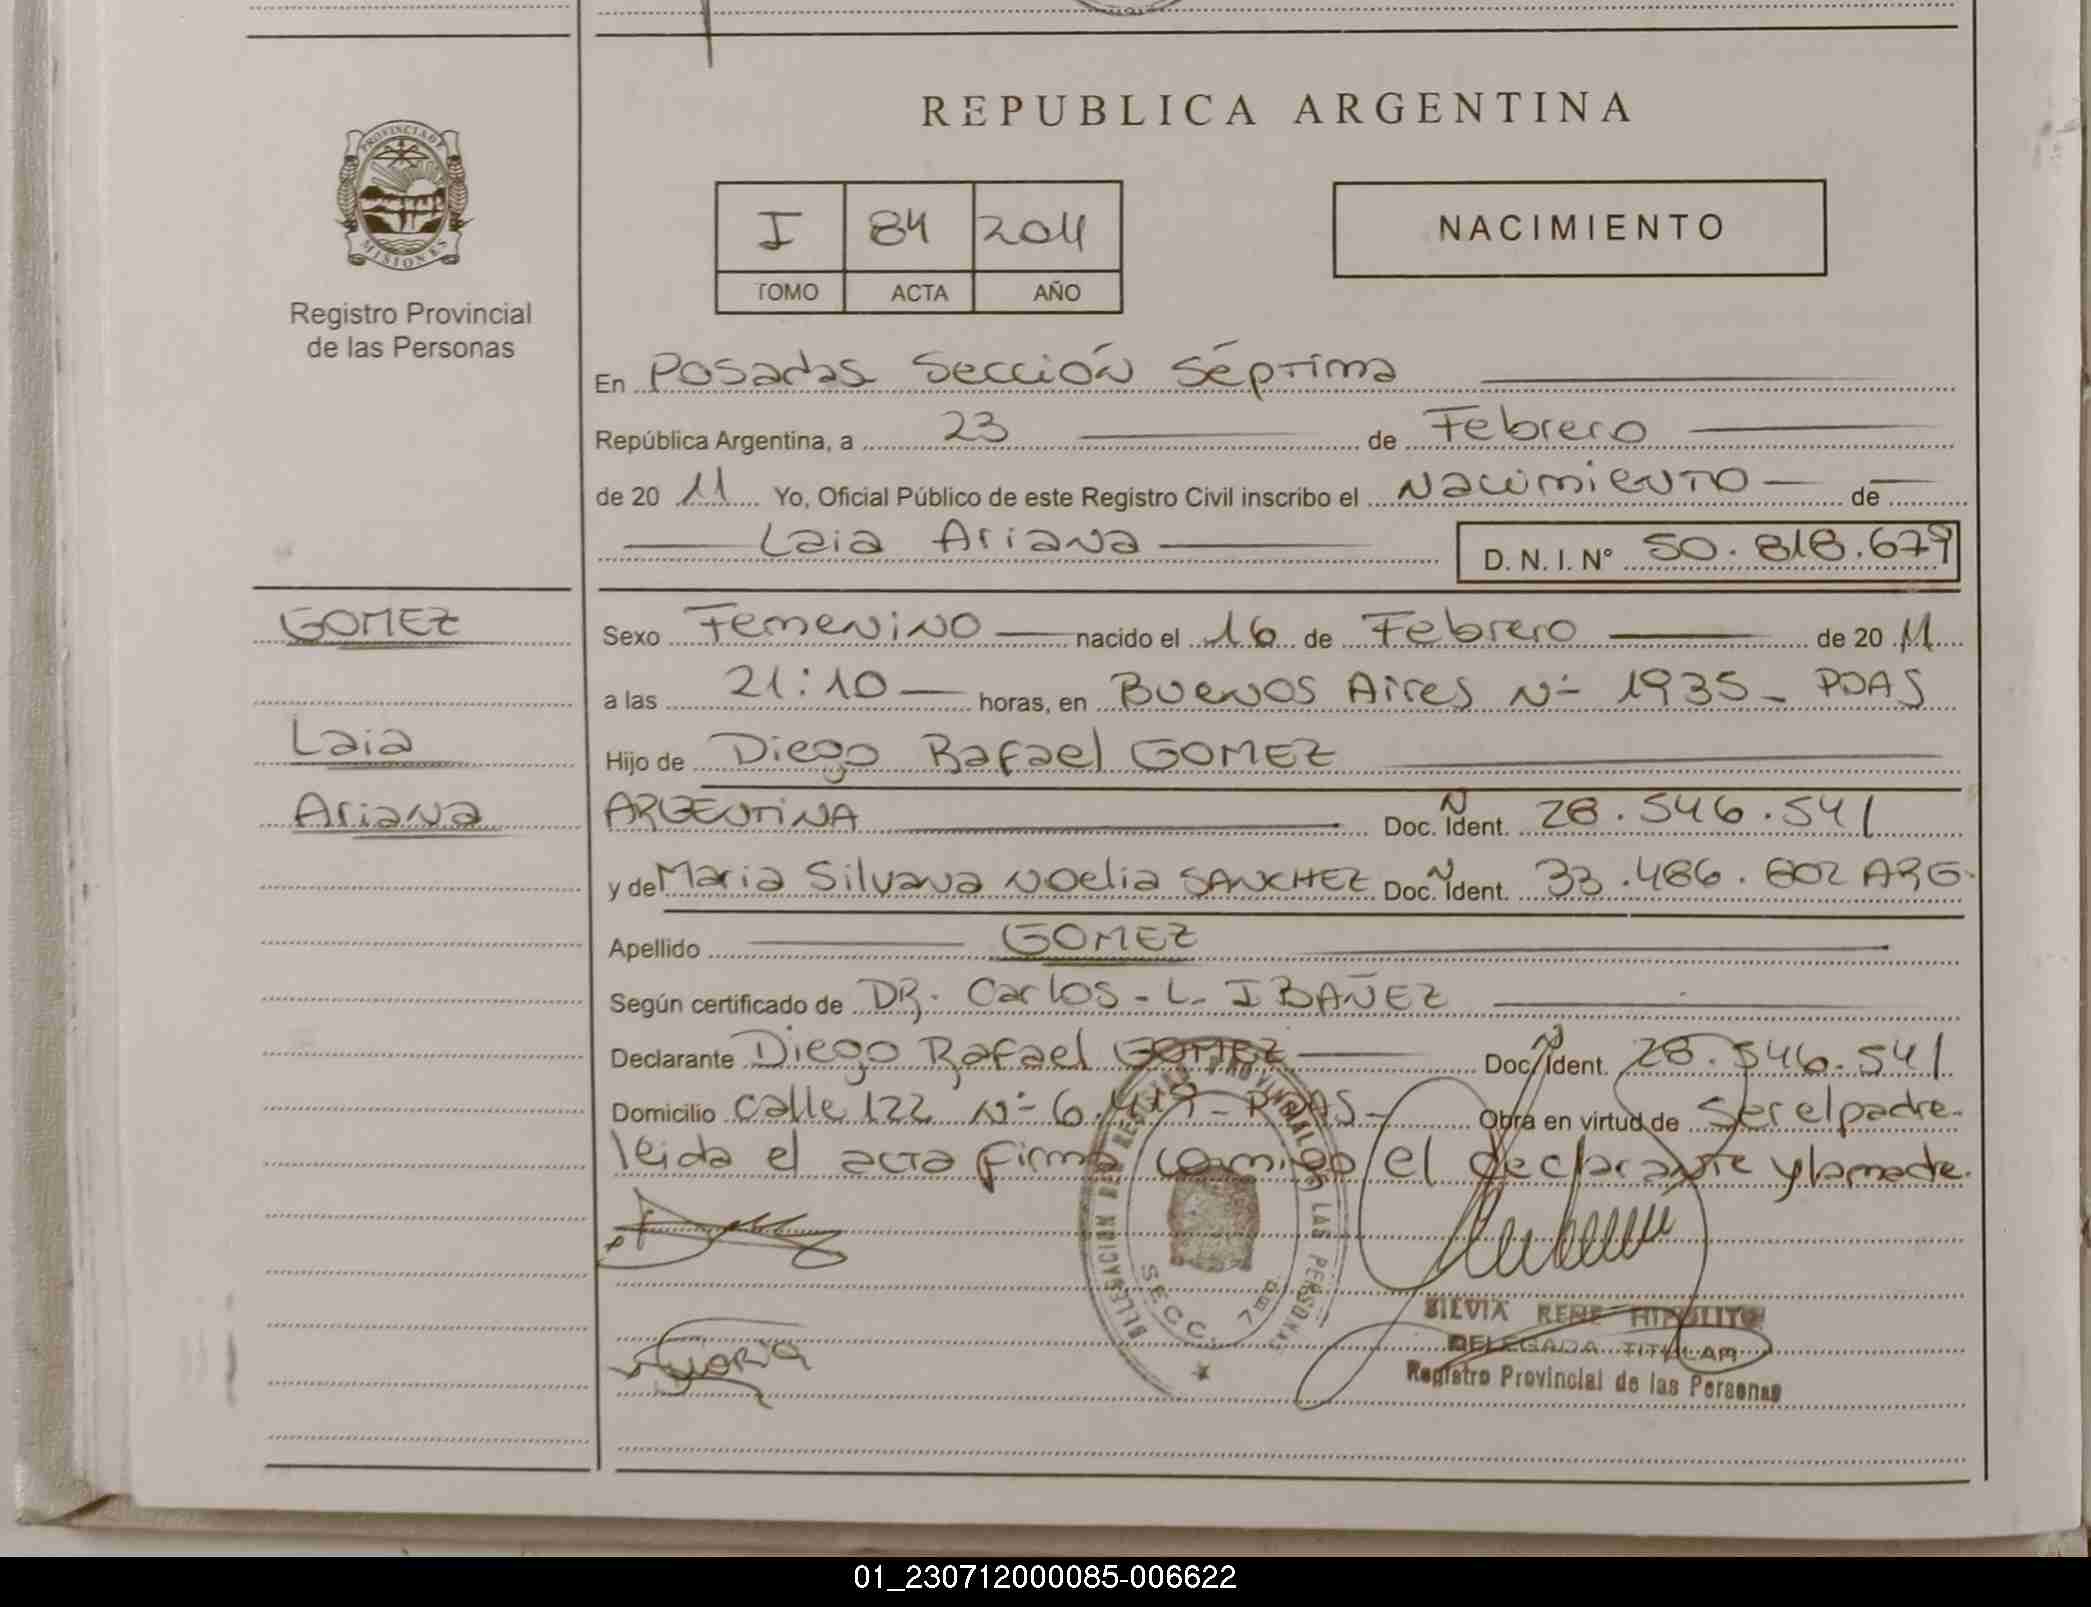 REPUBLICA ARGENTINA
PROVINCIA DE
MISIONES
Registro Provincial
de las Personas
I 84 2011
TOMO ACTA AÑO
NACIMIENTO
En Posadas Sección Séptima
República Argentina, a 23 de Febrero
de 20 11 Yo, Oficial Público de este Registro Civil inscribo el Nacimiento de
Laia Ariana D. N. I. Nº 50.818.679
GOMEZ
Laia
Ariana
Sexo Femenino nacido el 16 de Febrero de 20 11
a las 21:10 horas, en Buenos Aires Nº 1935 - PDAS
Hijo de Diego Rafael GOMEZ
ARGENTINA Doc. Ident. 28.546.541
y de Maria Silvana Noelia SANCHEZ Doc. Ident. 33.486.802 ARG.
Apellido GOMEZ
Según certificado de DR. Carlos - L. IBAÑEZ
Declarante Diego Rafael GOMEZ Doc. Ident. 28.546.541
Domicilio Calle 122 Nº - PDAS - Obra en virtud de Ser el padre.
leida el acta firma conmigo el declarante y la madre.
DELEGACION DEL REGISTRO PROVINCIAL DE LAS PERSONAS
SECC. 7ma
SILVIA RENE HIPOLITO
DELEGADA TITULAR
Registro Provincial de las Personas
01_230712000085-006622